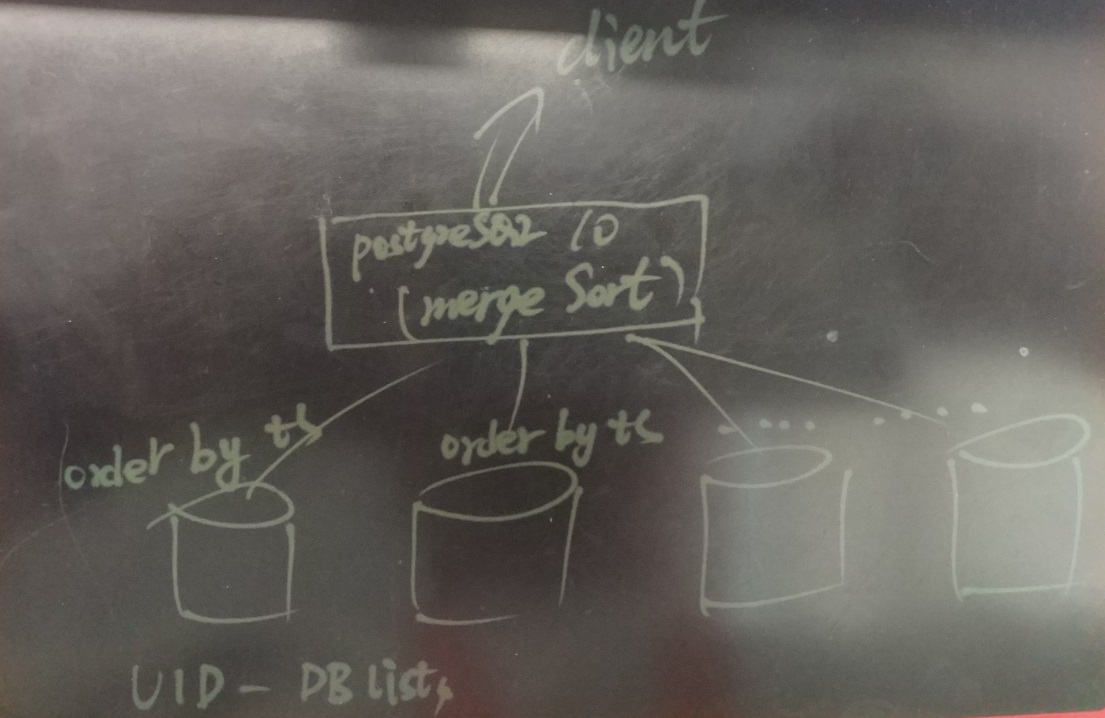 client
postgreSQL 10
(merge Sort)
order by ts
order by ts
....
....
UID - DB list,